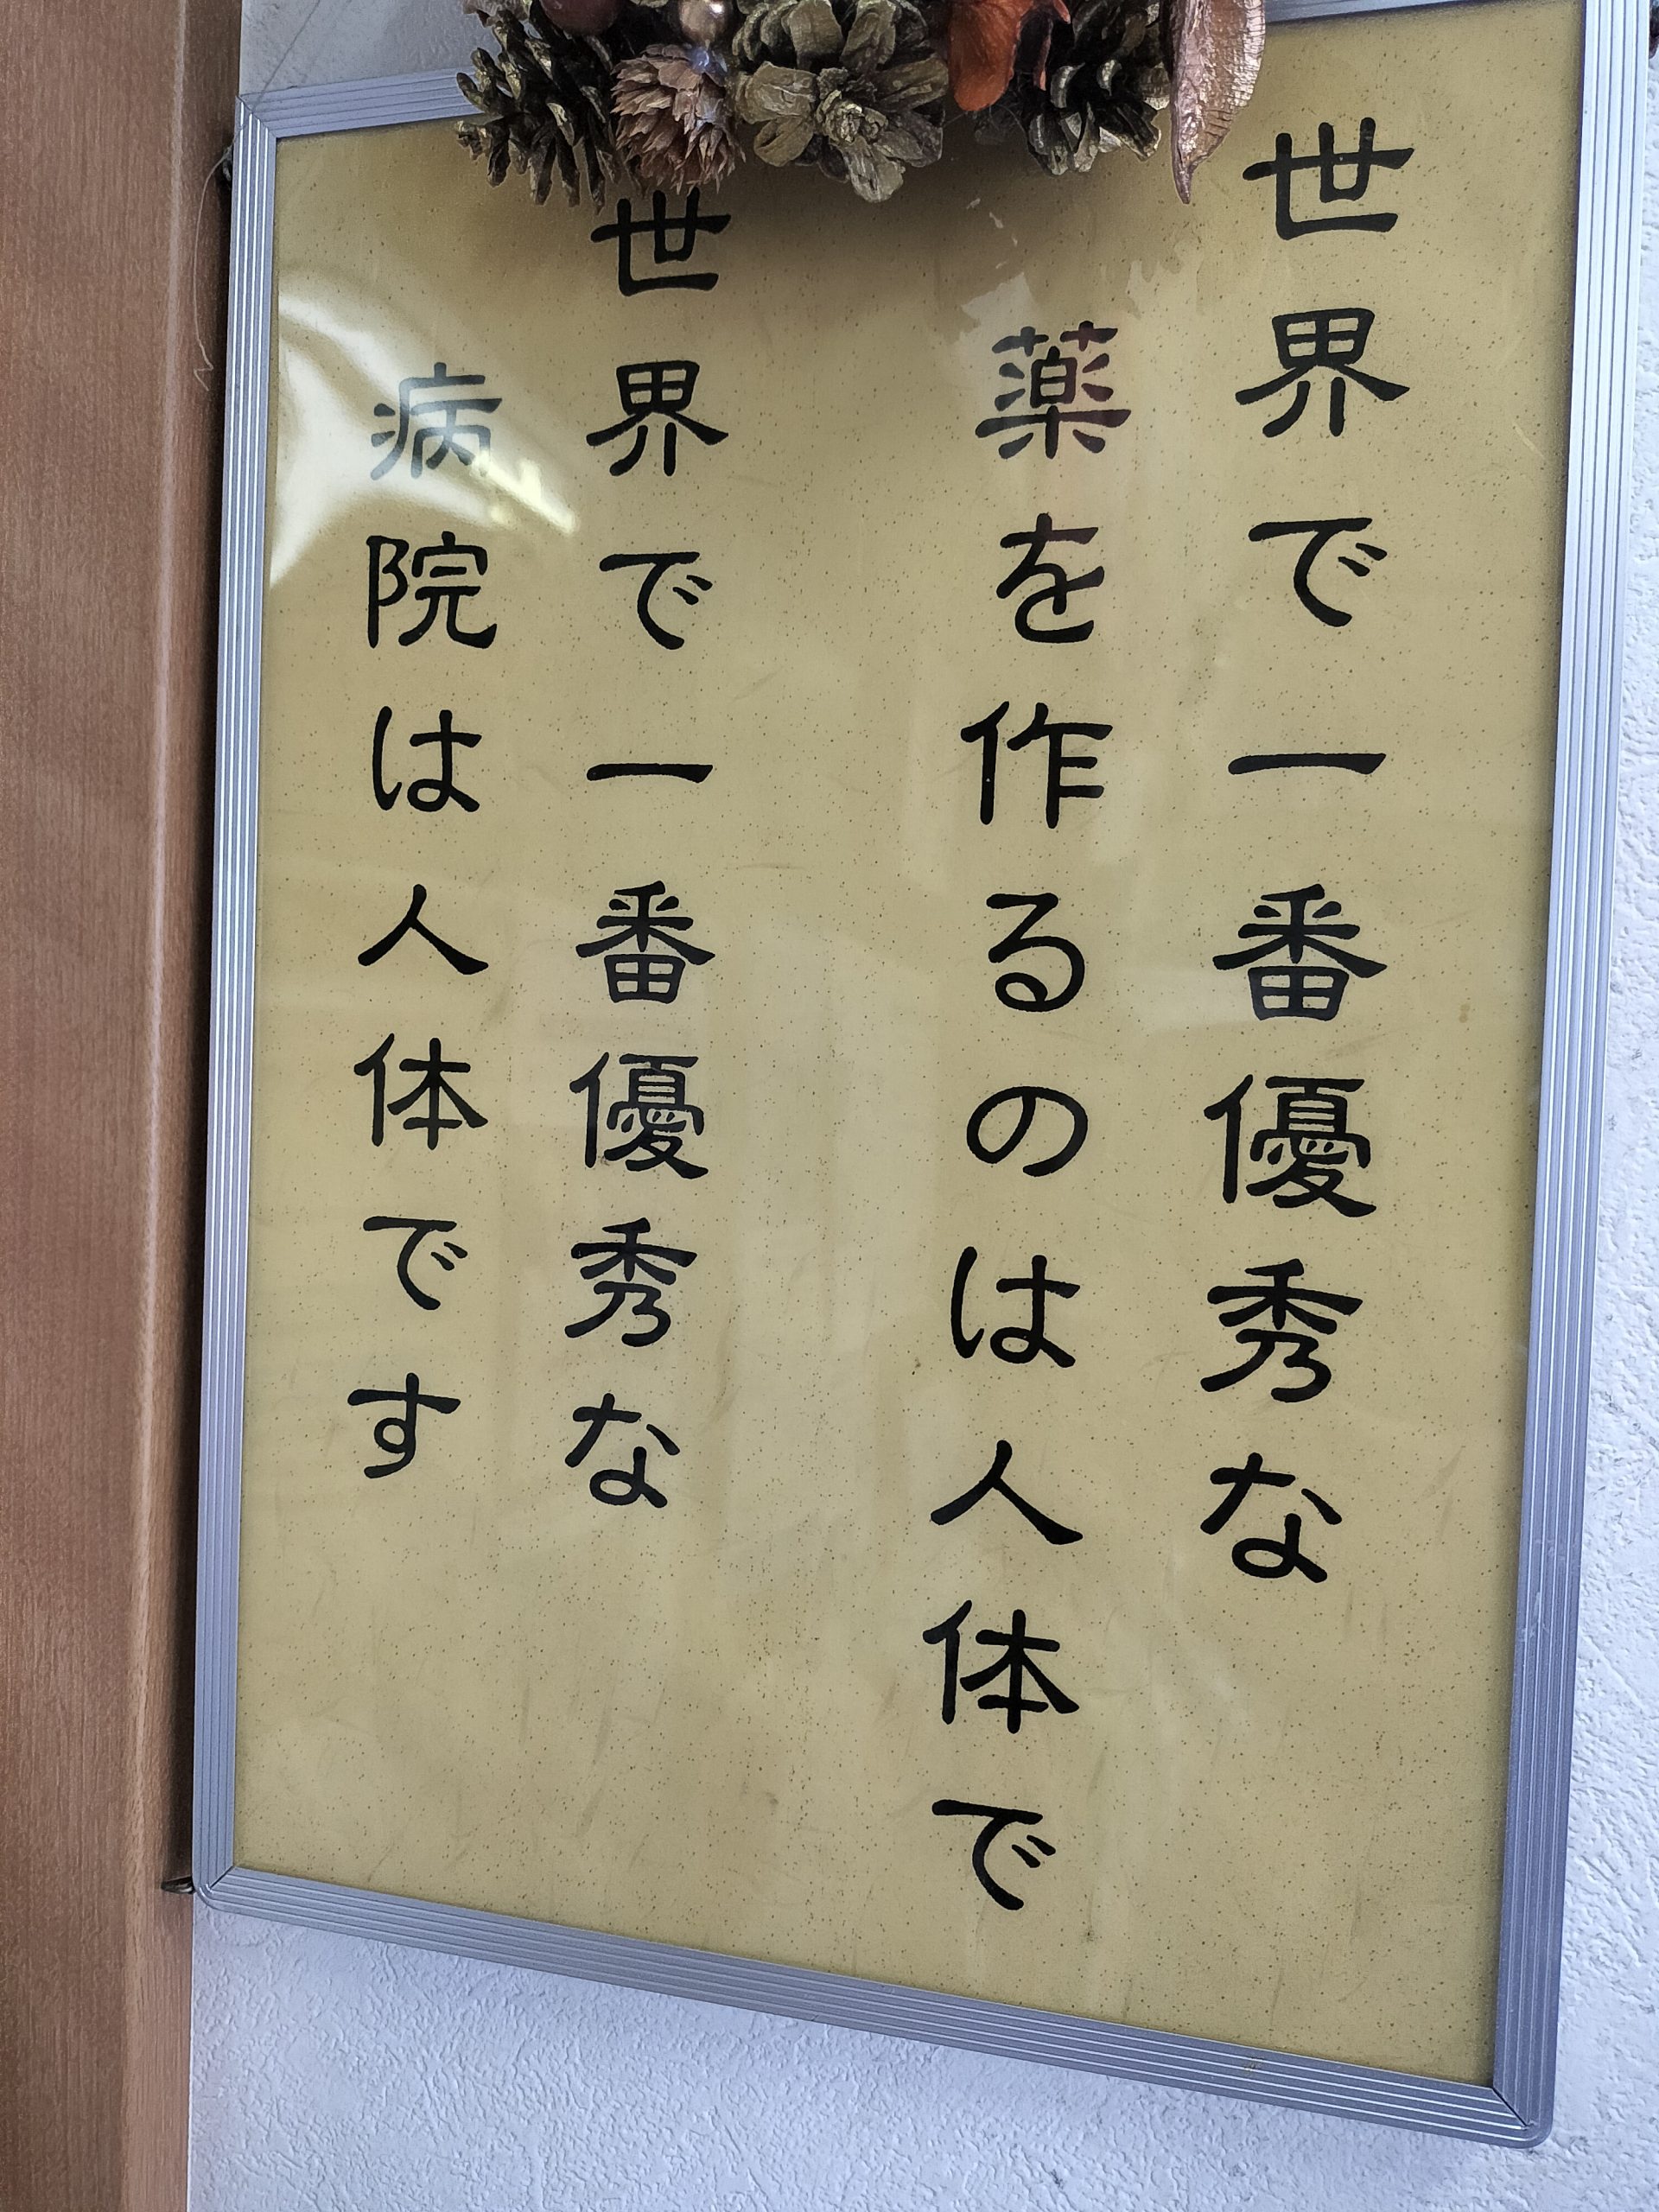 世界で一番優秀な
薬を作るのは人体で
世界で一番優秀な
病院は人体です